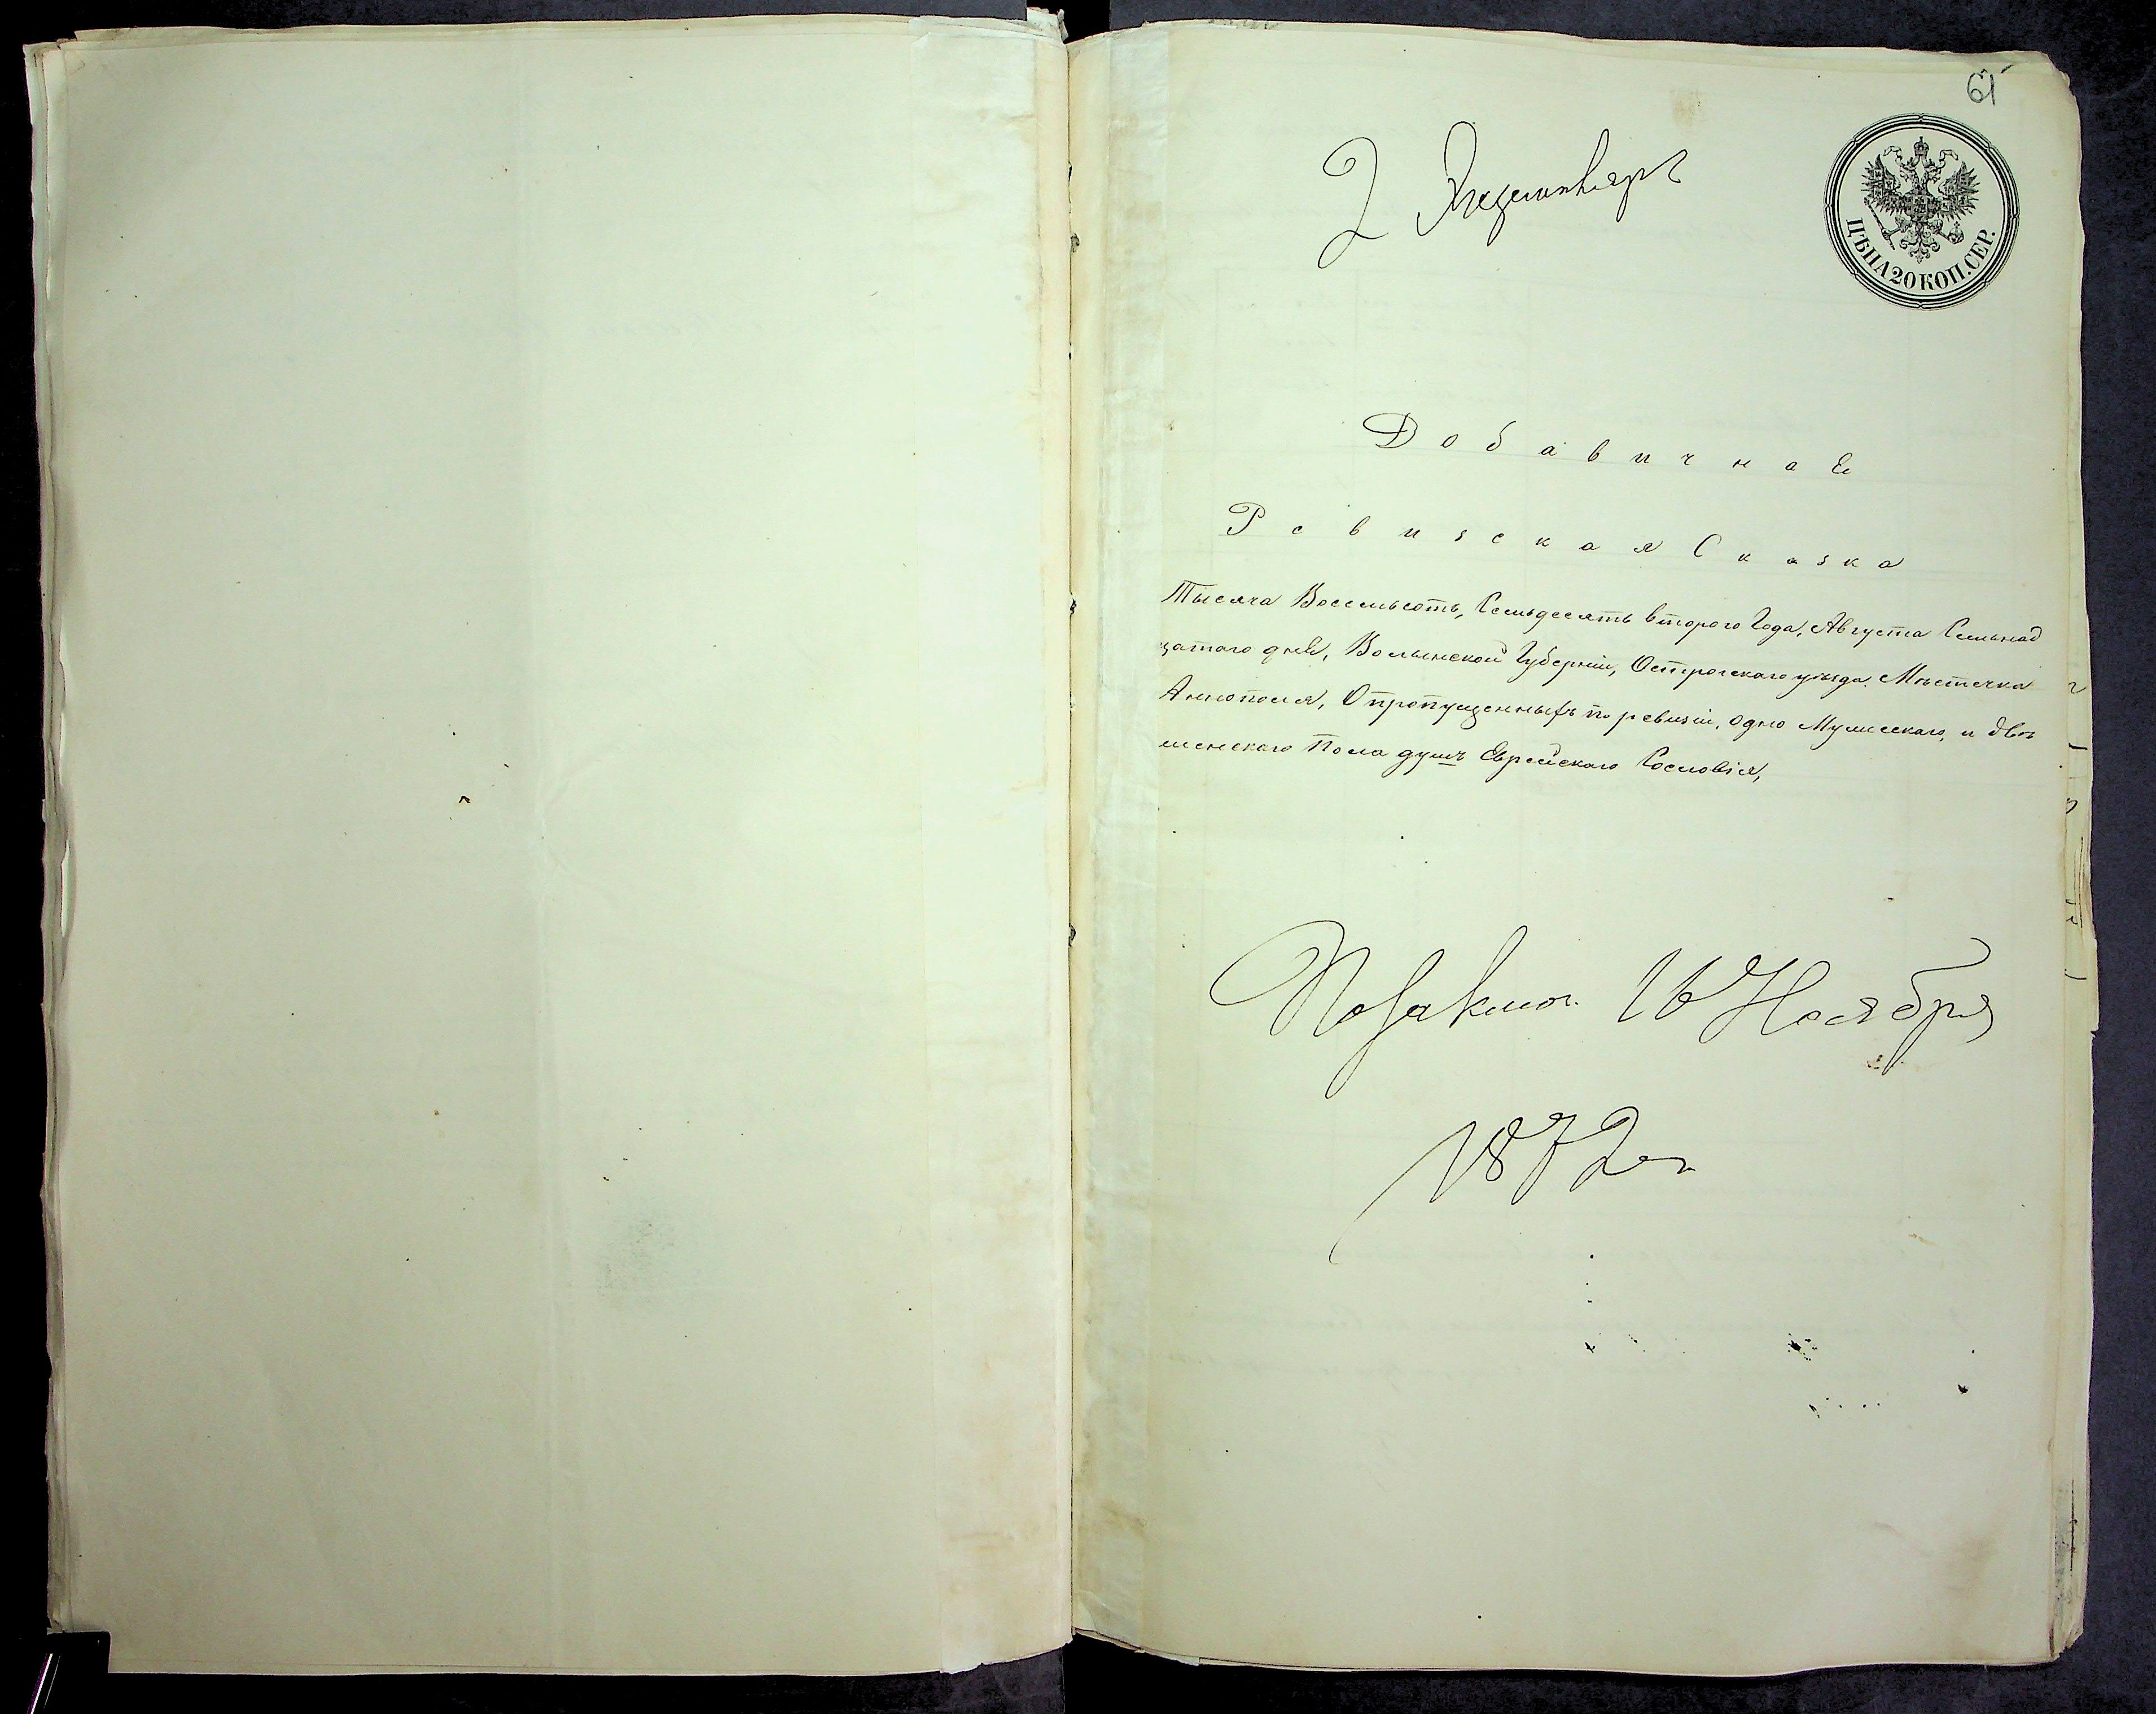 61
2 Экземпляръ
ЦѢНА 20 КОП. СЕР.
Добавичная
Ревиская Сказка
Тысяча Восемьсотъ, Семьдесятъ втораго Года, Августа Семьнад
цатого дня, Волынской Губерніи, Острогскаго уѣзда Мѣстечка
Аннополя, О пропущенныхъ по ревизіи, одно Мужескаго, и двѣ
женскаго Пола душъ Еврейскаго Сословія,
16 Ноября
1872 г.